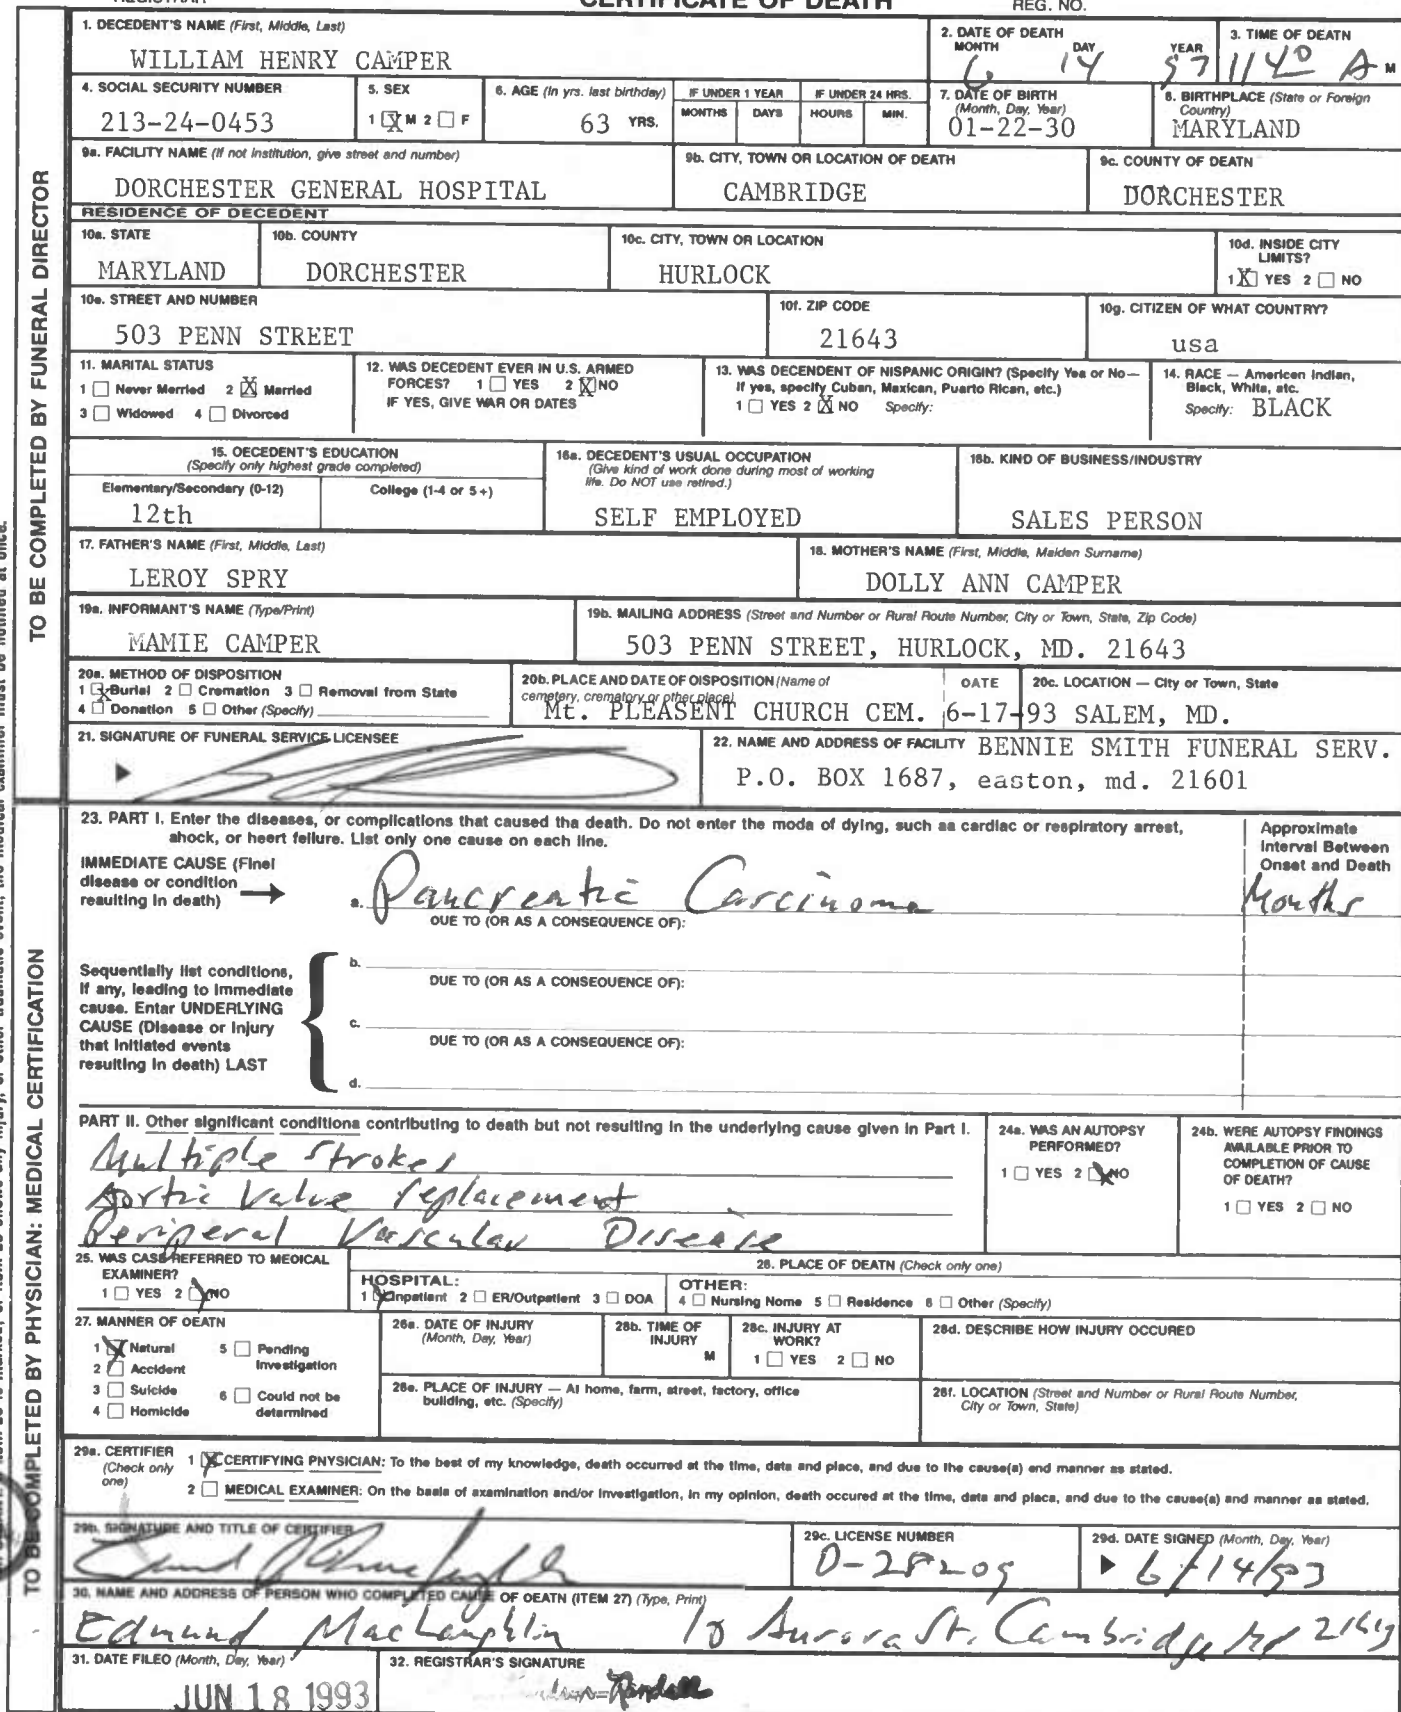 CERTIFICATE OF DEATH
REG. NO.
1. DECEDENT'S NAME (First, Middle, Last)
WILLIAM HENRY CAMPER
2. DATE OF DEATH
MONTH DAY YEAR
6 14 93
3. TIME OF DEATN
1140 A M
4. SOCIAL SECURITY NUMBER
213-24-0453
5. SEX
1 X M 2 F
6. AGE (In yrs. last birthday)
63 YRS.
IF UNDER 1 YEAR
MONTHS DAYS
IF UNDER 24 HRS.
HOURS MIN.
7. DATE OF BIRTH
(Month, Day, Year)
01-22-30
8. BIRTHPLACE (State or Foreign
Country)
MARYLAND
9a. FACILITY NAME (If not institution, give street and number)
DORCHESTER GENERAL HOSPITAL
9b. CITY, TOWN OR LOCATION OF DEATH
CAMBRIDGE
9c. COUNTY OF DEATH
DORCHESTER
TO BE COMPLETED BY FUNERAL DIRECTOR
RESIDENCE OF DECEDENT
10a. STATE
MARYLAND
10b. COUNTY
DORCHESTER
10c. CITY, TOWN OR LOCATION
HURLOCK
10d. INSIDE CITY
LIMITS?
1 X YES 2 NO
10e. STREET AND NUMBER
503 PENN STREET
10f. ZIP CODE
21643
10g. CITIZEN OF WHAT COUNTRY?
usa
11. MARITAL STATUS
1 Never Merried 2 X Married
3 Widowed 4 Divorced
12. WAS DECEDENT EVER IN U.S. ARMED
FORCES? 1 YES 2 X NO
IF YES, GIVE WAR OR DATES
13. WAS DECENDENT OF NISPANIC ORIGIN? (Specify Yea or No—
If yes, specify Cuban, Maxican, Puarto Rican, etc.)
1 YES 2 X NO Specify:
14. RACE — American Indian,
Black, Whita, atc.
Specify: BLACK
15. OECEDENT'S EDUCATION
(Specify only highest grade completed)
Elementary/Secondary (0-12) College (1-4 or 5+)
12th
16a. DECEDENT'S USUAL OCCUPATION
(Give kind of work done during most of working
life. Do NOT use retired.)
SELF EMPLOYED
16b. KIND OF BUSINESS/INDUSTRY
SALES PERSON
17. FATHER'S NAME (First, Middle, Last)
LEROY SPRY
18. MOTHER'S NAME (First, Middle, Maiden Surname)
DOLLY ANN CAMPER
19a. INFORMANT'S NAME (Type/Print)
MAMIE CAMPER
19b. MAILING ADDRESS (Street and Number or Rural Route Number, City or Town, State, Zip Code)
503 PENN STREET, HURLOCK, MD. 21643
20a. METHOD OF DISPOSITION
1 X Burial 2 Cremation 3 Removal from State
4 Donation 5 Other (Specify)
20b. PLACE AND DATE OF OISPOSITION (Name of
cemetery, crematory or other place)
Mt. PLEASENT CHURCH CEM.
OATE
6-17-93
20c. LOCATION — City or Town, State
SALEM, MD.
21. SIGNATURE OF FUNERAL SERVICE LICENSEE
22. NAME AND ADDRESS OF FACILITY BENNIE SMITH FUNERAL SERV.
P.O. BOX 1687, easton, md. 21601
TO BE COMPLETED BY PHYSICIAN: MEDICAL CERTIFICATION
23. PART I. Enter the diseases, or complications that caused tha death. Do not enter the moda of dying, such aa cardiac or respiratory arrest,
ahock, or heert fellure. List only one cause on each line.
Approximate
Interval Between
Onset and Death
IMMEDIATE CAUSE (Finel
disease or condition
resulting in death)
a. Pancreatic Carcinoma
Months
DUE TO (OR AS A CONSEQUENCE OF):
Sequentially list conditions,
If any, leading to immediate
cause. Enter UNDERLYING
CAUSE (Disease or Injury
that initiated events
resulting in death) LAST
b.
DUE TO (OR AS A CONSEQUENCE OF):
c.
DUE TO (OR AS A CONSEQUENCE OF):
d.
PART II. Other significant conditiona contributing to death but not resulting in the underlying cause given in Part I.
Multiple Strokes
Aortic Valve replacement
Periperal Vascular Disease
24a. WAS AN AUTOPSY
PERFORMED?
1 YES 2 X NO
24b. WERE AUTOPSY FINDINGS
AVAILABLE PRIOR TO
COMPLETION OF CAUSE
OF DEATH?
1 YES 2 NO
25. WAS CASE REFERRED TO MEOICAL
EXAMINER?
1 YES 2 X NO
26. PLACE OF DEATH (Check only one)
HOSPITAL:
1 X Inpatient 2 ER/Outpatient 3 DOA
OTHER:
4 Nursing Nome 5 Residence 6 Other (Specify)
27. MANNER OF DEATN
1 X Natural 5 Pending
2 Accident Investigation
3 Suicide 6 Could not be
4 Homicide determined
28a. DATE OF INJURY
(Month, Day, Year)
28b. TIME OF
INJURY
M
28c. INJURY AT
WORK?
1 YES 2 NO
28d. DESCRIBE HOW INJURY OCCURED
28e. PLACE OF INJURY — At home, farm, street, factory, office
building, etc. (Specify)
28f. LOCATION (Street and Number or Rural Route Number,
City or Town, State)
29a. CERTIFIER
(Check only
one)
1 X CERTIFYING PNYSICIAN: To the best of my knowledge, death occurred at the time, data and place, and due to the cause(a) end manner as stated.
2 MEDICAL EXAMINER: On the basis of examination and/or investigation, in my opinion, death occured at the time, data and placa, and due to the cause(a) and manner aa stated.
29b. SIGNATURE AND TITLE OF CERTIFIER
29c. LICENSE NUMBER
D-28209
29d. DATE SIGNED (Month, Day, Year)
6/14/93
30. NAME AND ADDRESS OF PERSON WHO COMPLETED CAUSE OF OEATN (ITEM 27) (Type, Print)
Edmund MacLaughlin 10 Aurora St. Cambridge Md 21613
31. DATE FILEO (Month, Day, Year)
JUN 18 1993
32. REGISTRAR'S SIGNATURE
Randall